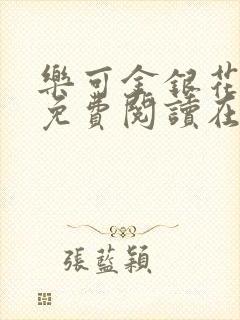 樂可金銀花
免費閱讀在
張藍穎